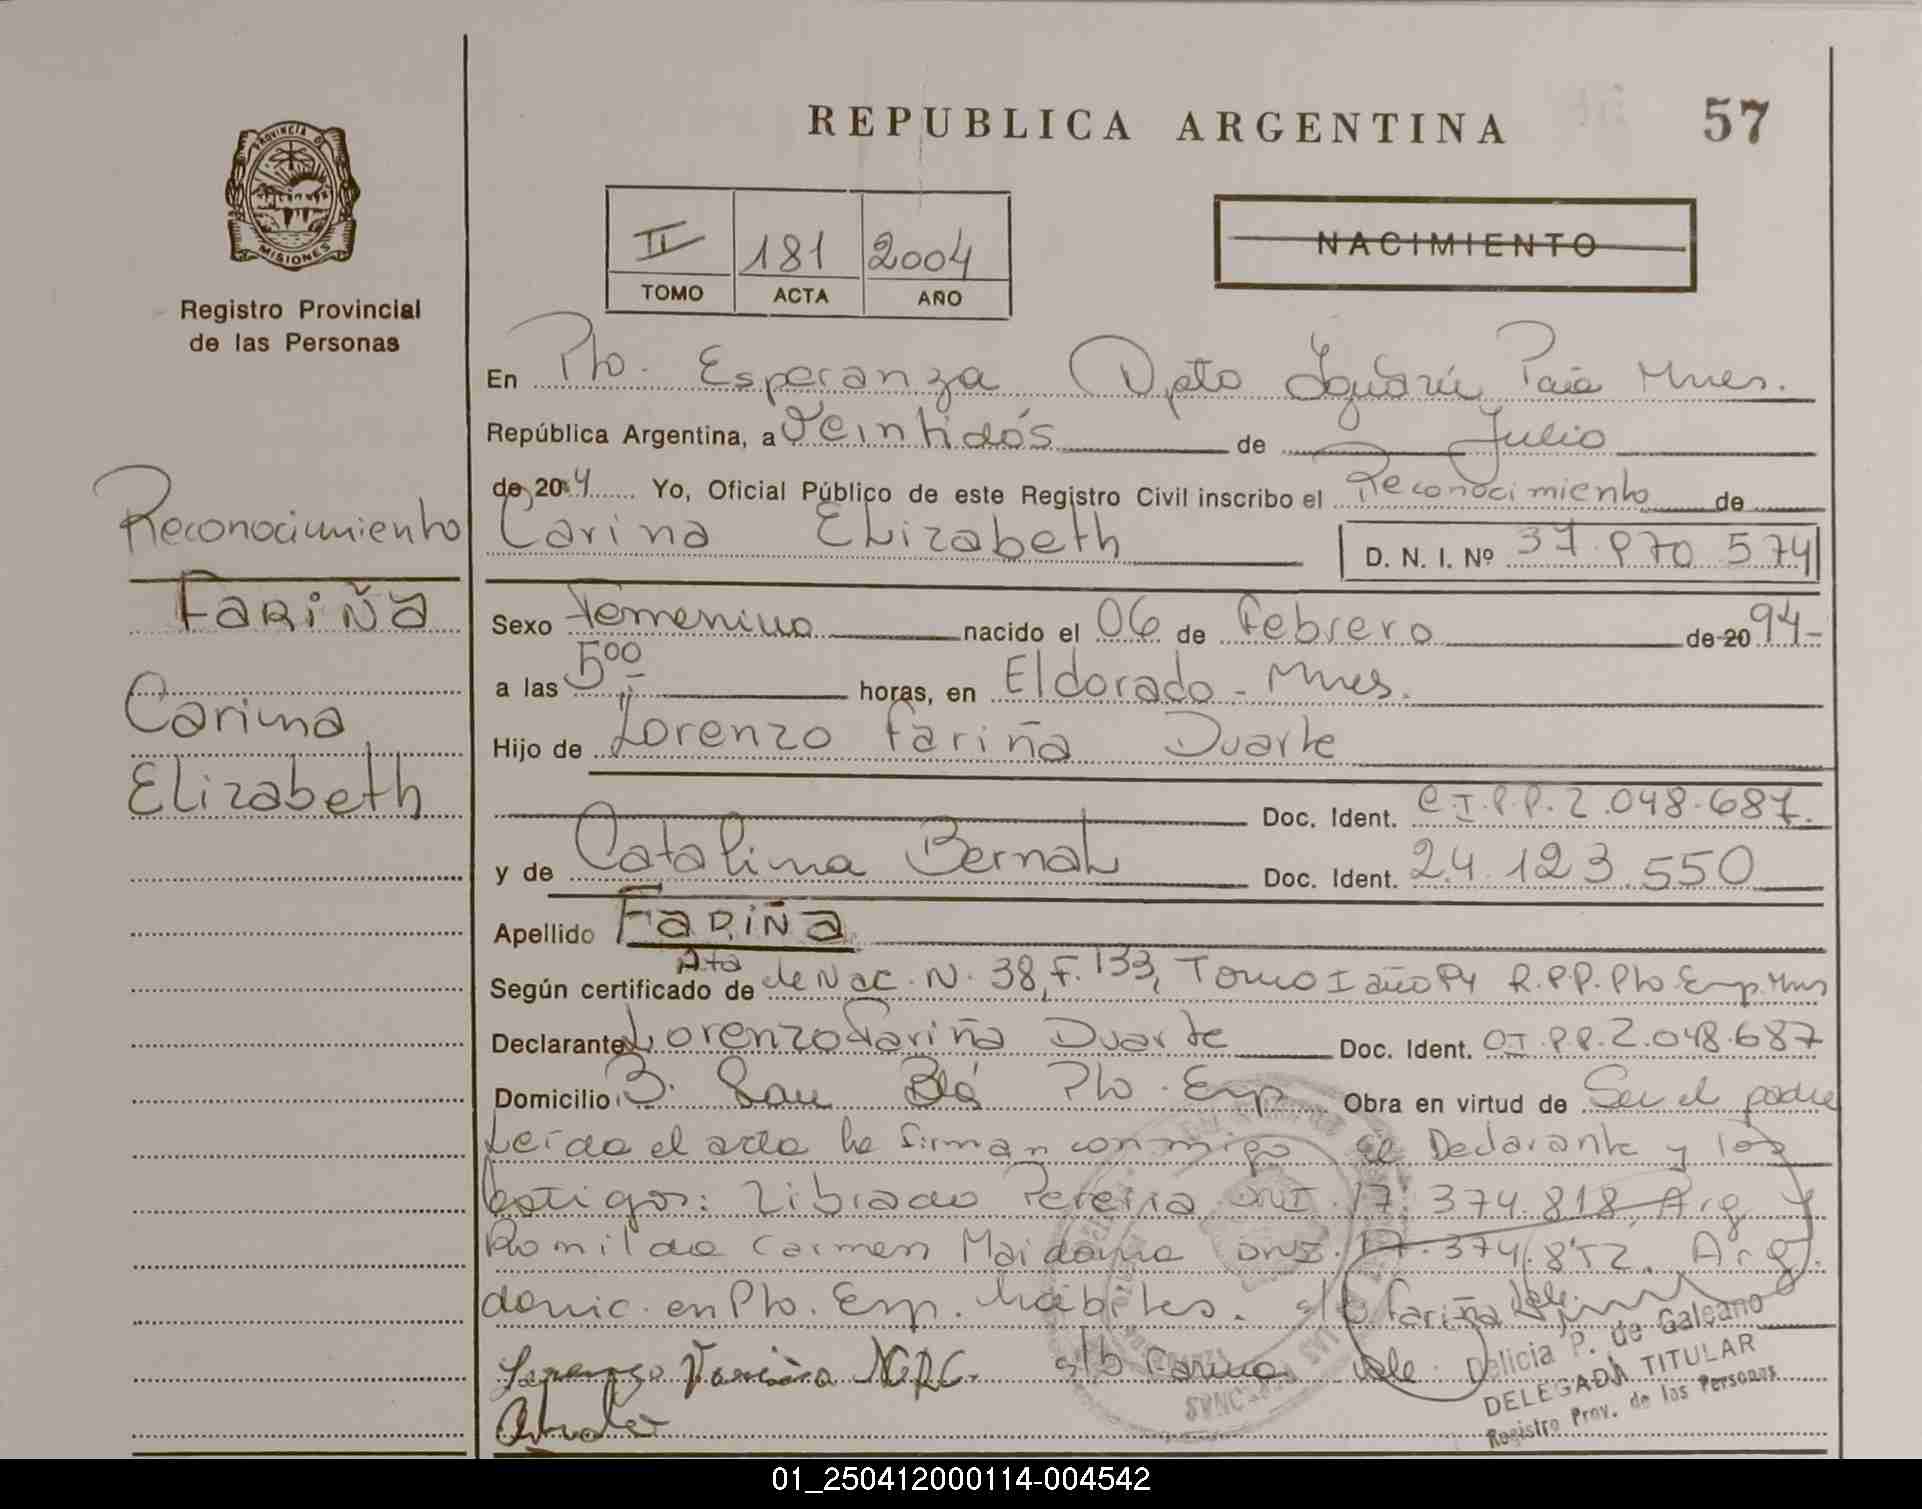 REPUBLICA ARGENTINA
57
PROVINCIA DE
MISIONES
Registro Provincial
de las Personas
II 181 2004
TOMO ACTA AÑO
NACIMIENTO
En Pto. Esperanza Dpto Iguazú Pcia Mnes.
República Argentina, a Veintidós de Julio
de 2004 Yo, Oficial Público de este Registro Civil inscribo el Reconocimiento de
Carina Elizabeth D. N. I. Nº 37.970.574
Reconocimiento
FARIÑA
Carina
Elizabeth
Sexo Femenino nacido el 06 de Febrero de 20 94-
a las 500 horas, en Eldorado - Mnes.
Hijo de Lorenzo Fariña Duarte
Doc. Ident. C.I.P.P. 2.048.687.
y de Catalina Bernal Doc. Ident. 24.123.550
Apellido FARIÑA
Según certificado de Acta de Nac. N. 38, F. 133, Tomo I año 94 R.P.P. Pto. Esp. Mnes
Declarante Lorenzo Fariña Duarte Doc. Ident. CI.P.P. 2.048.687
Domicilio B. San Blá Pto. Esp Obra en virtud de Ser el padre
Leída el acta la firman conmigo el Declarante y los
testigos: Librado Pereira DNI. 17.374.818, Arg y
Romilda Carmen Maidana DNI. 17.374.852. Arg.
domic. en Pto. Esp. hábiles. s/b Fariña Vale.
Lorenzo Fariña s/b Carina Vale.
Delicia P. de Galeano
DELEGADA TITULAR
Registro Prov. de las Personas
01_250412000114-004542